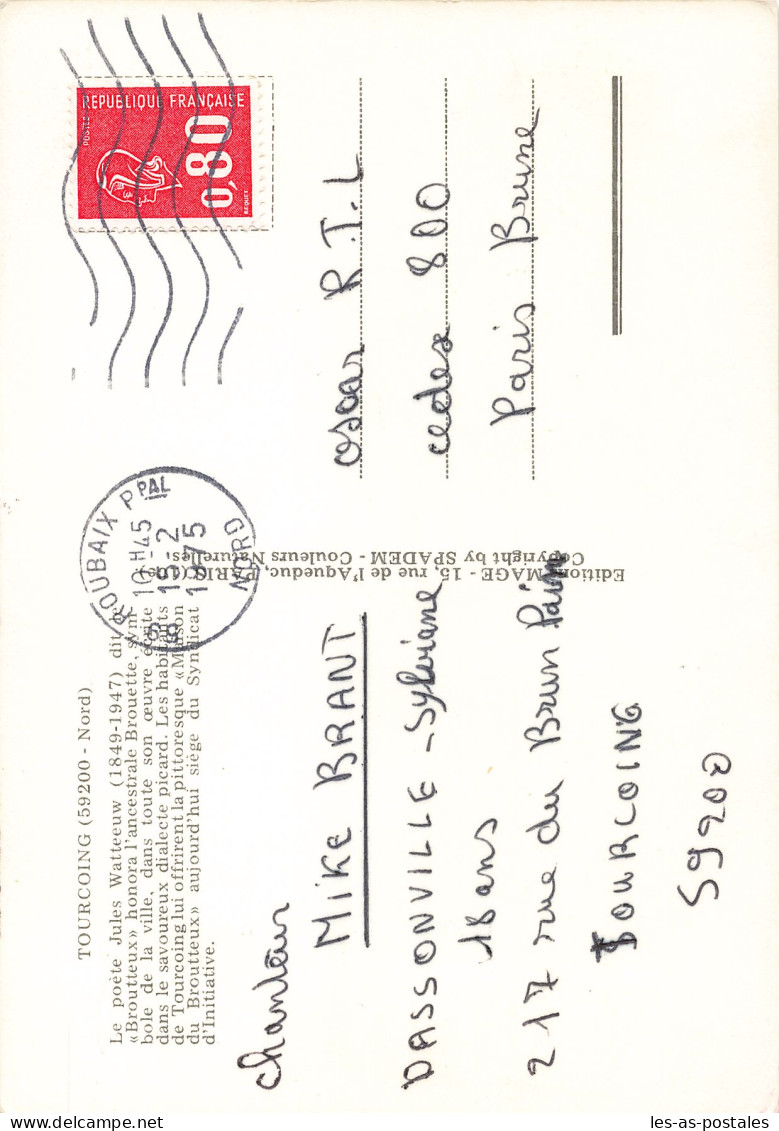 TOURCOING (59200 - Nord)
Le poète Jules Watteeuw (1849-1947) dit le
«Broutteux» honora l'ancestrale Brouette, sym-
bole de la ville, dans toute son œuvre écrite
dans le savoureux dialecte picard. Les habitants
de Tourcoing lui offrirent la pittoresque «Maison
du Broutteux» aujourd'hui siège du Syndicat
d'Initiative.
chanteur
MIKE BRANT
DASSONVILLE - Sylviane
18 ans
217 rue du Brun Pain
TOURCOING
59200
Editions MAGE - 15, rue de l'Aqueduc, PARIS (10e)
Copyright by SPADEM - Couleurs Naturelles.
ROUBAIX PPAL
10H45
15-2
1975
NORD
REPUBLIQUE FRANÇAISE
POSTES
0,80
BEQUET
oscar R.T.L
cedex 800
Paris Brune
les-as-postales